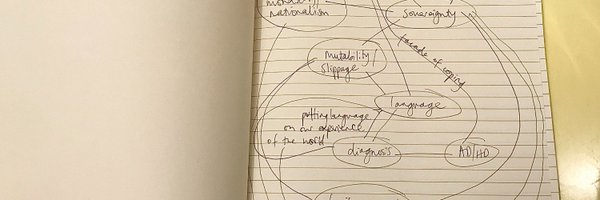 nationalism
Sovereignty
mutability/
slippage
facade of coping
language
putting language
on our experience
of the world
diagnosis
AD/HD